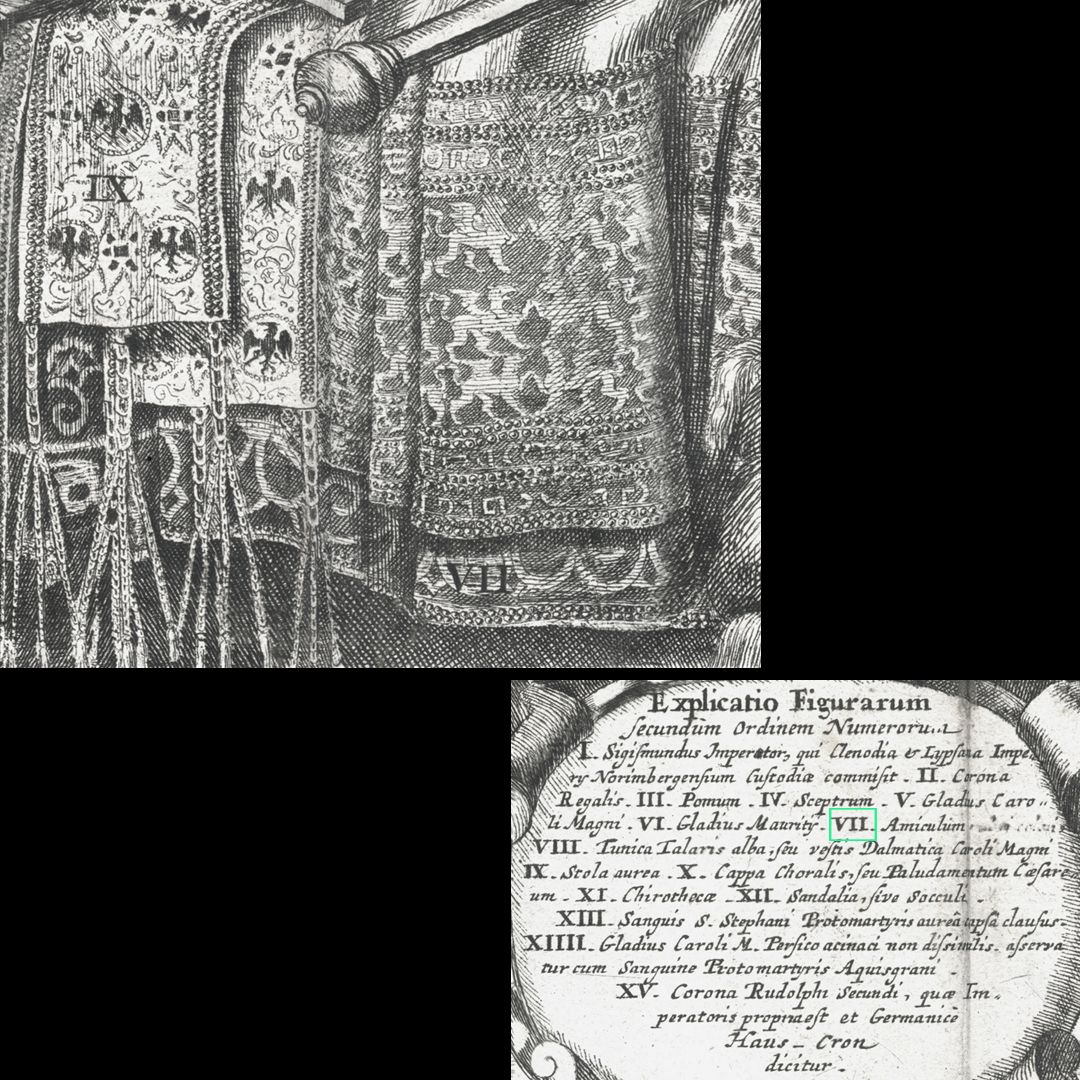 IX
VII
Explicatio Figurarum
secundum Ordinem Numerorum
I. Sigismundus Imperator, qui Clenodia & Lypsana Impe
ry Norimbergensium Custodiæ commisit. II. Corona
Regalis. III. Pomum. IV. Sceptrum. V. Gladus Caro
li Magni. VI. Gladius Maurity. VII. Amiculum
VIII. Tunica Talaris alba, seu vestis Dalmatica Caroli Magni
IX. Stola aurea. X. Cappa Choralis, seu Paludamentum Cæsare
um. XI. Chirothecæ XII. Sandalia, sive Socculi.
XIII. Sanguis S. Stephani Protomartyris aureâ capsâ clausus.
XIIII. Gladius Caroli M. Persico acinaci non dissimilis. asserva
tur cum Sanguine Protomartyris Aquisgrani.
XV. Corona Rudolphi Secundi, quæ Im.
peratoris propria est et Germanicè
Haus-Cron
dicitur.